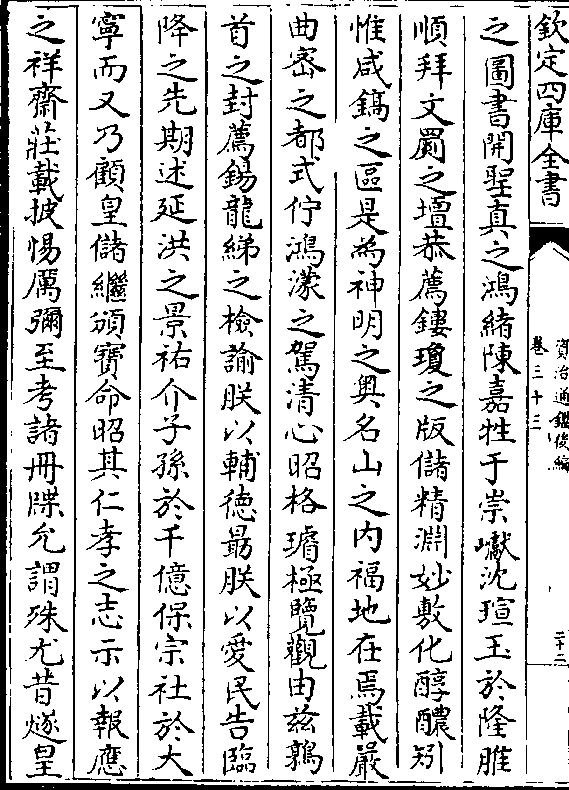 欽定四庫全書
資治通鑑後編
卷三十三
二十二
之圖書開聖真之鴻緒陳嘉牲于崇巘沈瑄玉於隆脽
順拜文罽之壇恭薦鏤瓊之版儲精淵妙敷化醇醲矧
惟咸鎬之區是為神明之輿名山之内福地在焉載嚴
曲宻之都式佇鴻濛之駕清心昭格璿極覽觀由兹鶉
首之封薦錫龍綈之檢諭朕以輔徳勗朕以愛民告臨
降之先期述延洪之景祐介子孫於千億保宗社於大
寧而又乃顧皇儲繼頒寶命昭其仁孝之志示以報應
之祥齋莊載披惕厲彌至考諸冊牒允謂殊尤昔燧皇